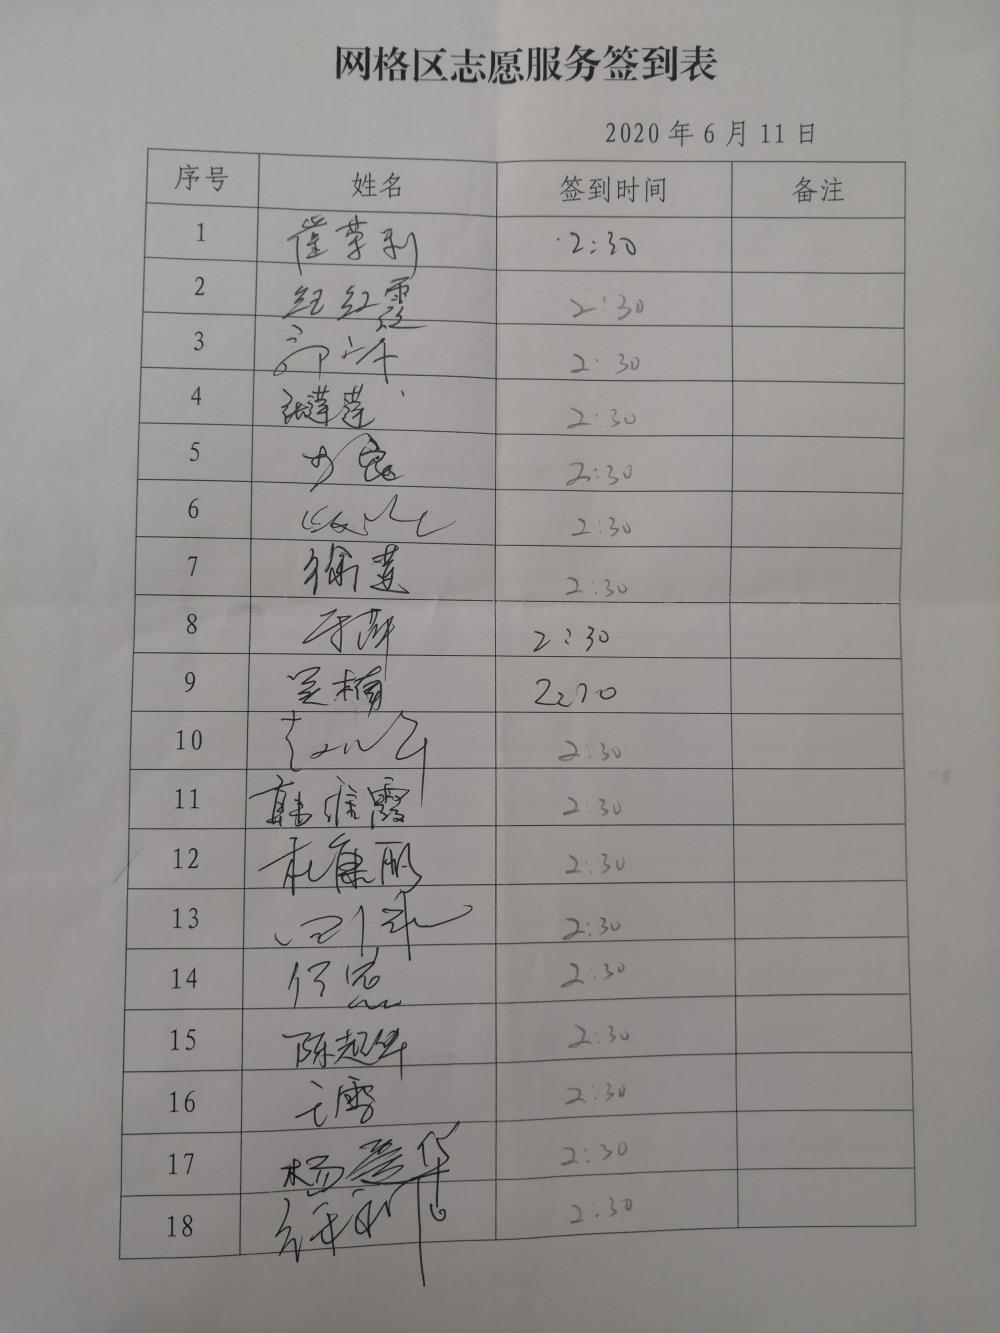 网格区志愿服务签到表
2020年6月11日
序号 姓名 签到时间 备注
1 崔荣利 2:30
2 纪红霞 2:30
3 2:30
4 张莲莲 2:30
5 2:30
6 2:30
7 徐莲 2:30
8 于萍 2:30
9 吴楠 2:30
10 2:30
11 韩维霞 2:30
12 杜康彤 2:30
13 2:30
14 何忠 2:30
15 陈起华 2:30
16 王雪 2:30
17 杨莹华 2:30
18 2:30